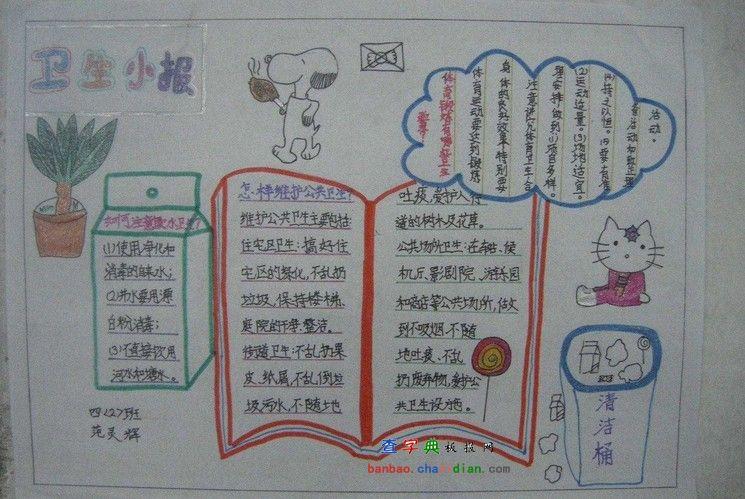 卫生小报
如何注意饮水卫生?
(1)使用净化和
消毒的自来水;
(2)井水要用漂
白粉消毒;
(3)不直接饮用
河水和塘水。
四(2)班
范灵辉
怎样维护公共卫生?
维护公共卫生主要包括
住宅区卫生:搞好住
宅区的绿化,不乱扔
垃圾,保持楼梯、
庭院的干净、整洁。
街道卫生:不乱扔果
皮、纸屑,不乱倒垃
圾污水,不随地
吐痰,爱护人行
道的树木及花草。
公共场所卫生:在车站、候
机厅、影剧院、游乐园
和商店等公共场所,做
到不吸烟、不随
地吐痰、不乱
扔废弃物,爱护公
共卫生设施。
体育锻炼有哪些卫生
要求?
体育运动要达到锻炼
身体的良好效果,特别要
注意讲究体育卫生,合
理安排,做到:(1)项目多样。
(2)运动适量。(3)场地适宜。
(4)持之以恒。(5)要有准
备活动和整理
活动。
清洁桶
查字典板报网
banbao.chazidian.com